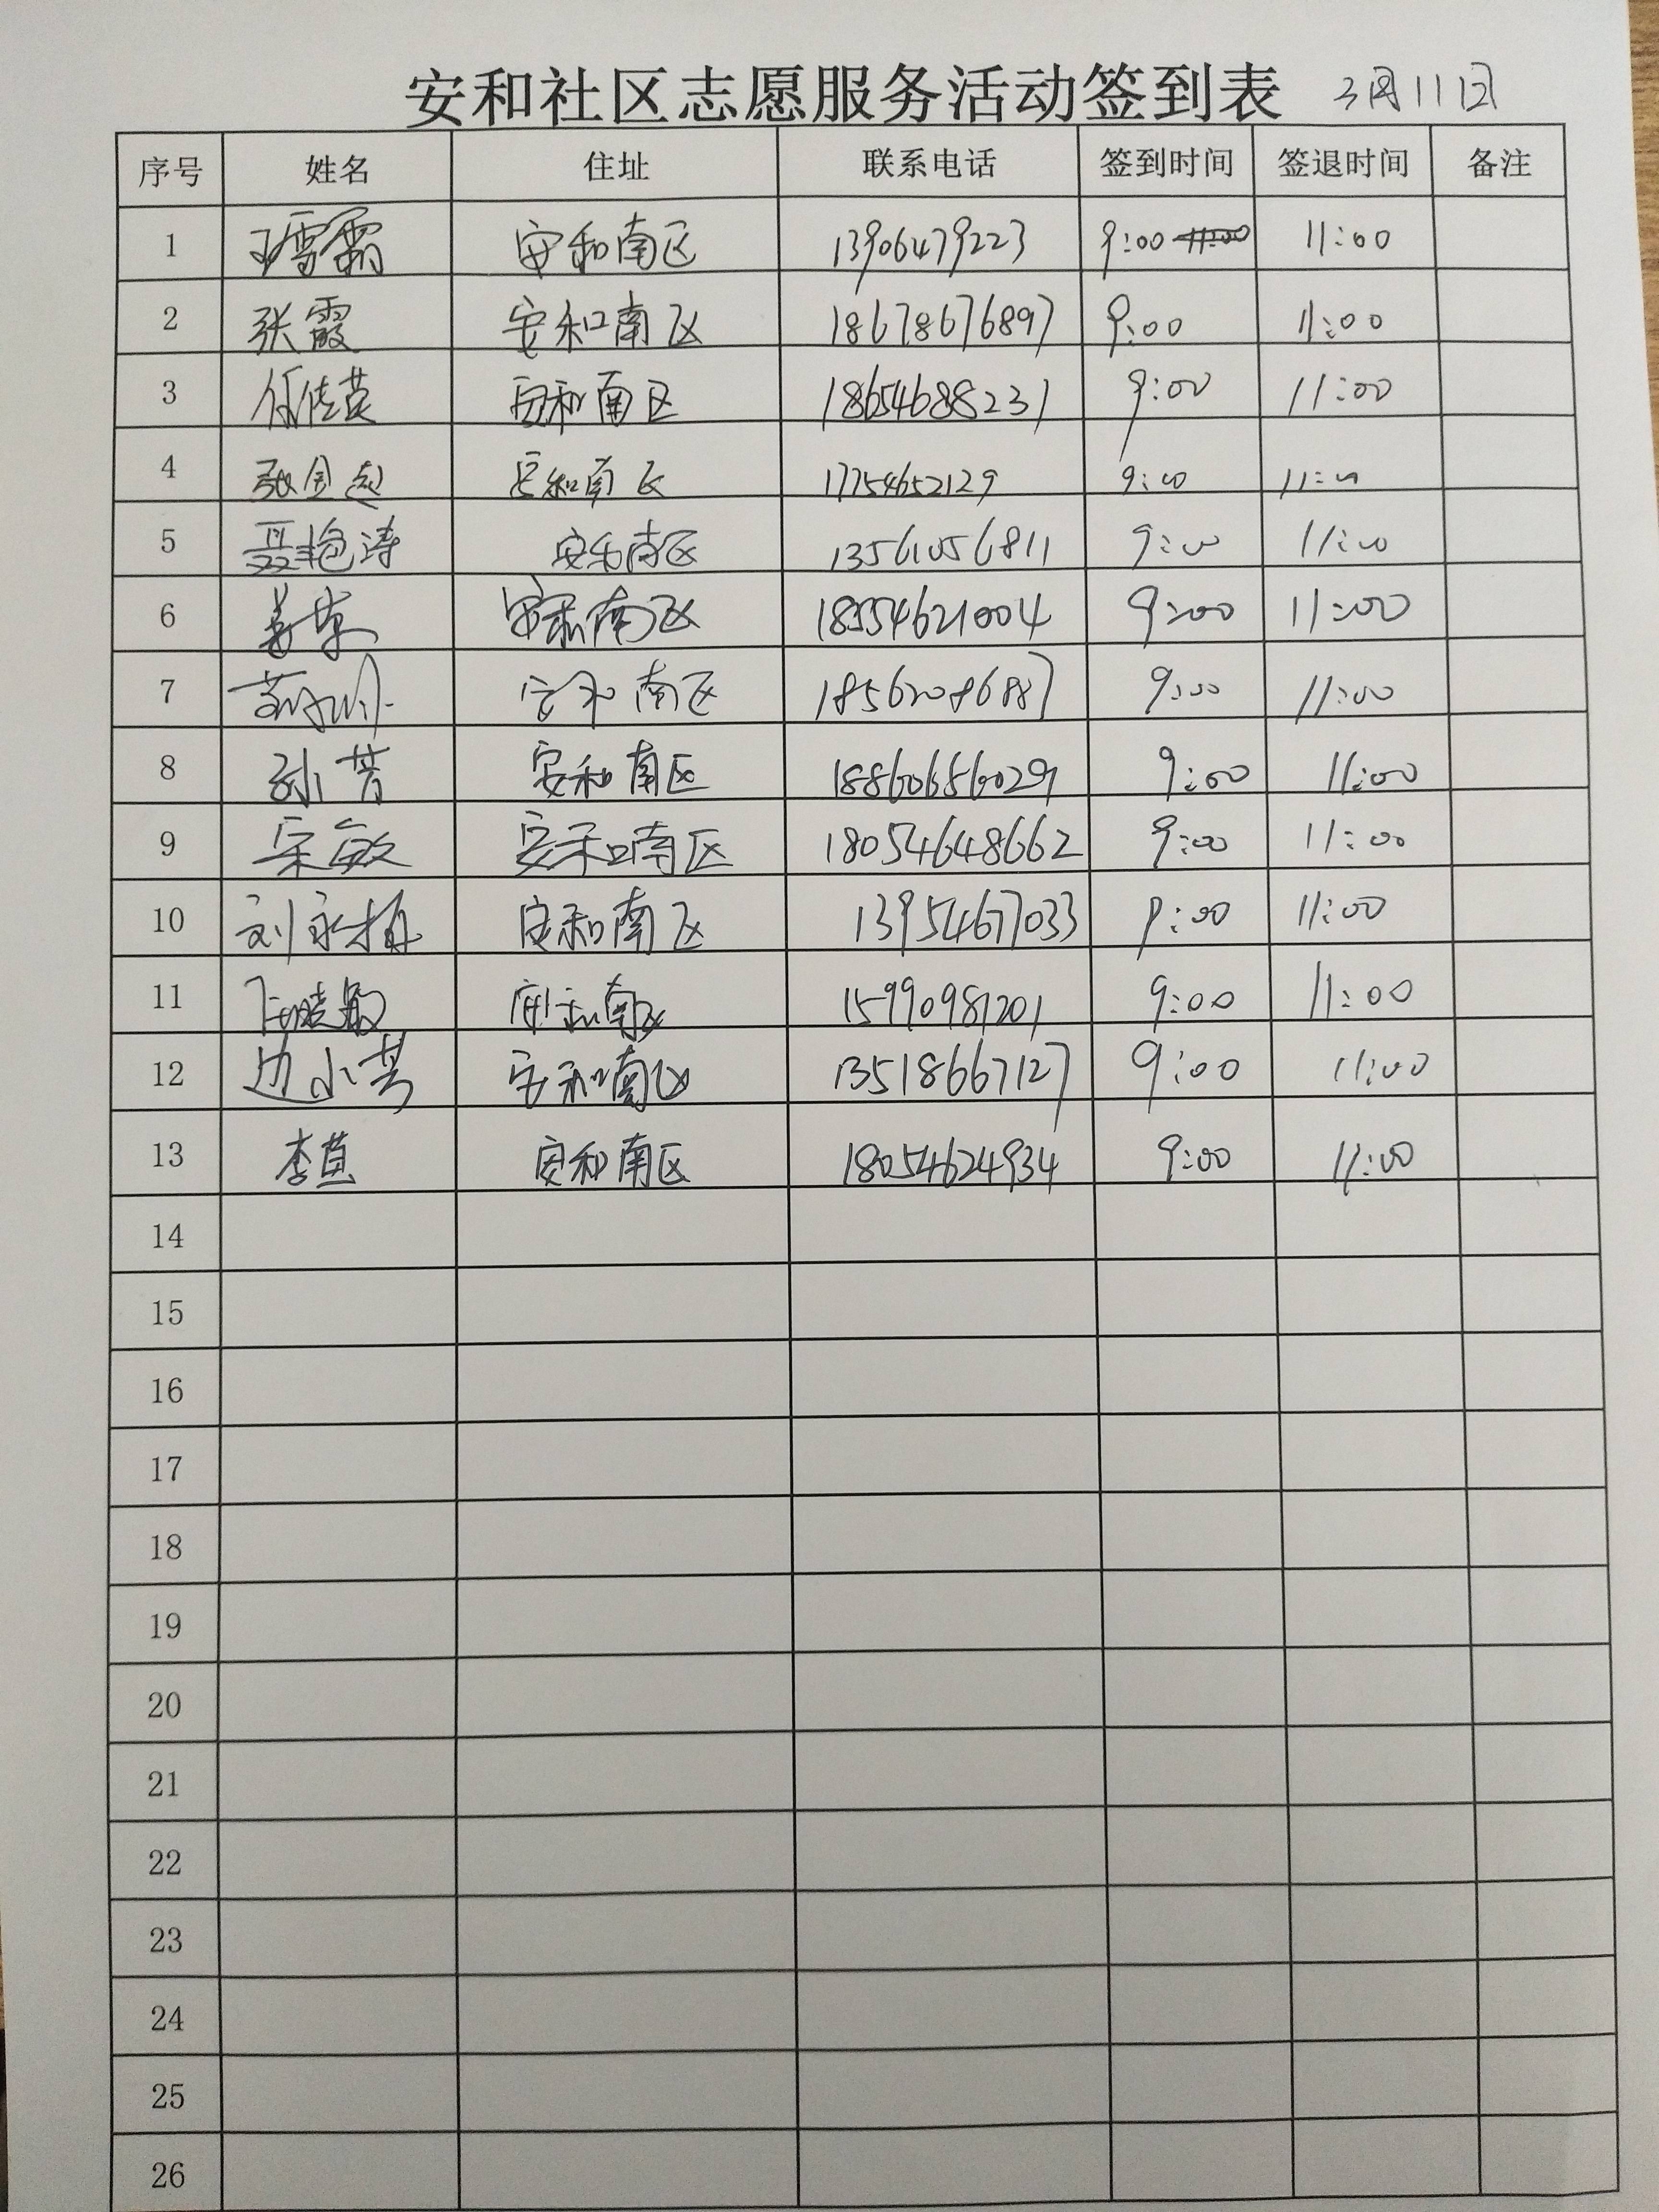 安和社区志愿服务活动签到表 3月11日
序号 姓名 住址 联系电话 签到时间 签退时间 备注
1 安和南区 13906479223 9:00 11:00 11:00
2 张霞 安和南区 18678676897 9:00 11:00
3 任佳英 安和南区 18654688231 9:00 11:00
4 安和南区 17754652129 9:00 11:00
5 聂艳涛 安和南区 13561056811 9:00 11:00
6 安和南区 18554621004 9:00 11:00
7 安和南区 18562086887 9:00 11:00
8 孙芳 安和南区 18860656029 9:00 11:00
9 宋敏 安和南区 18054648662 9:00 11:00
10 刘永梅 安和南区 13954677033 9:00 11:00
11 安和南区 15990981201 9:00 11:00
12 边小芳 安和南区 13518667127 9:00 11:00
13 安和南区 18054624934 9:00 11:00
14
15
16
17
18
19
20
21
22
23
24
25
26